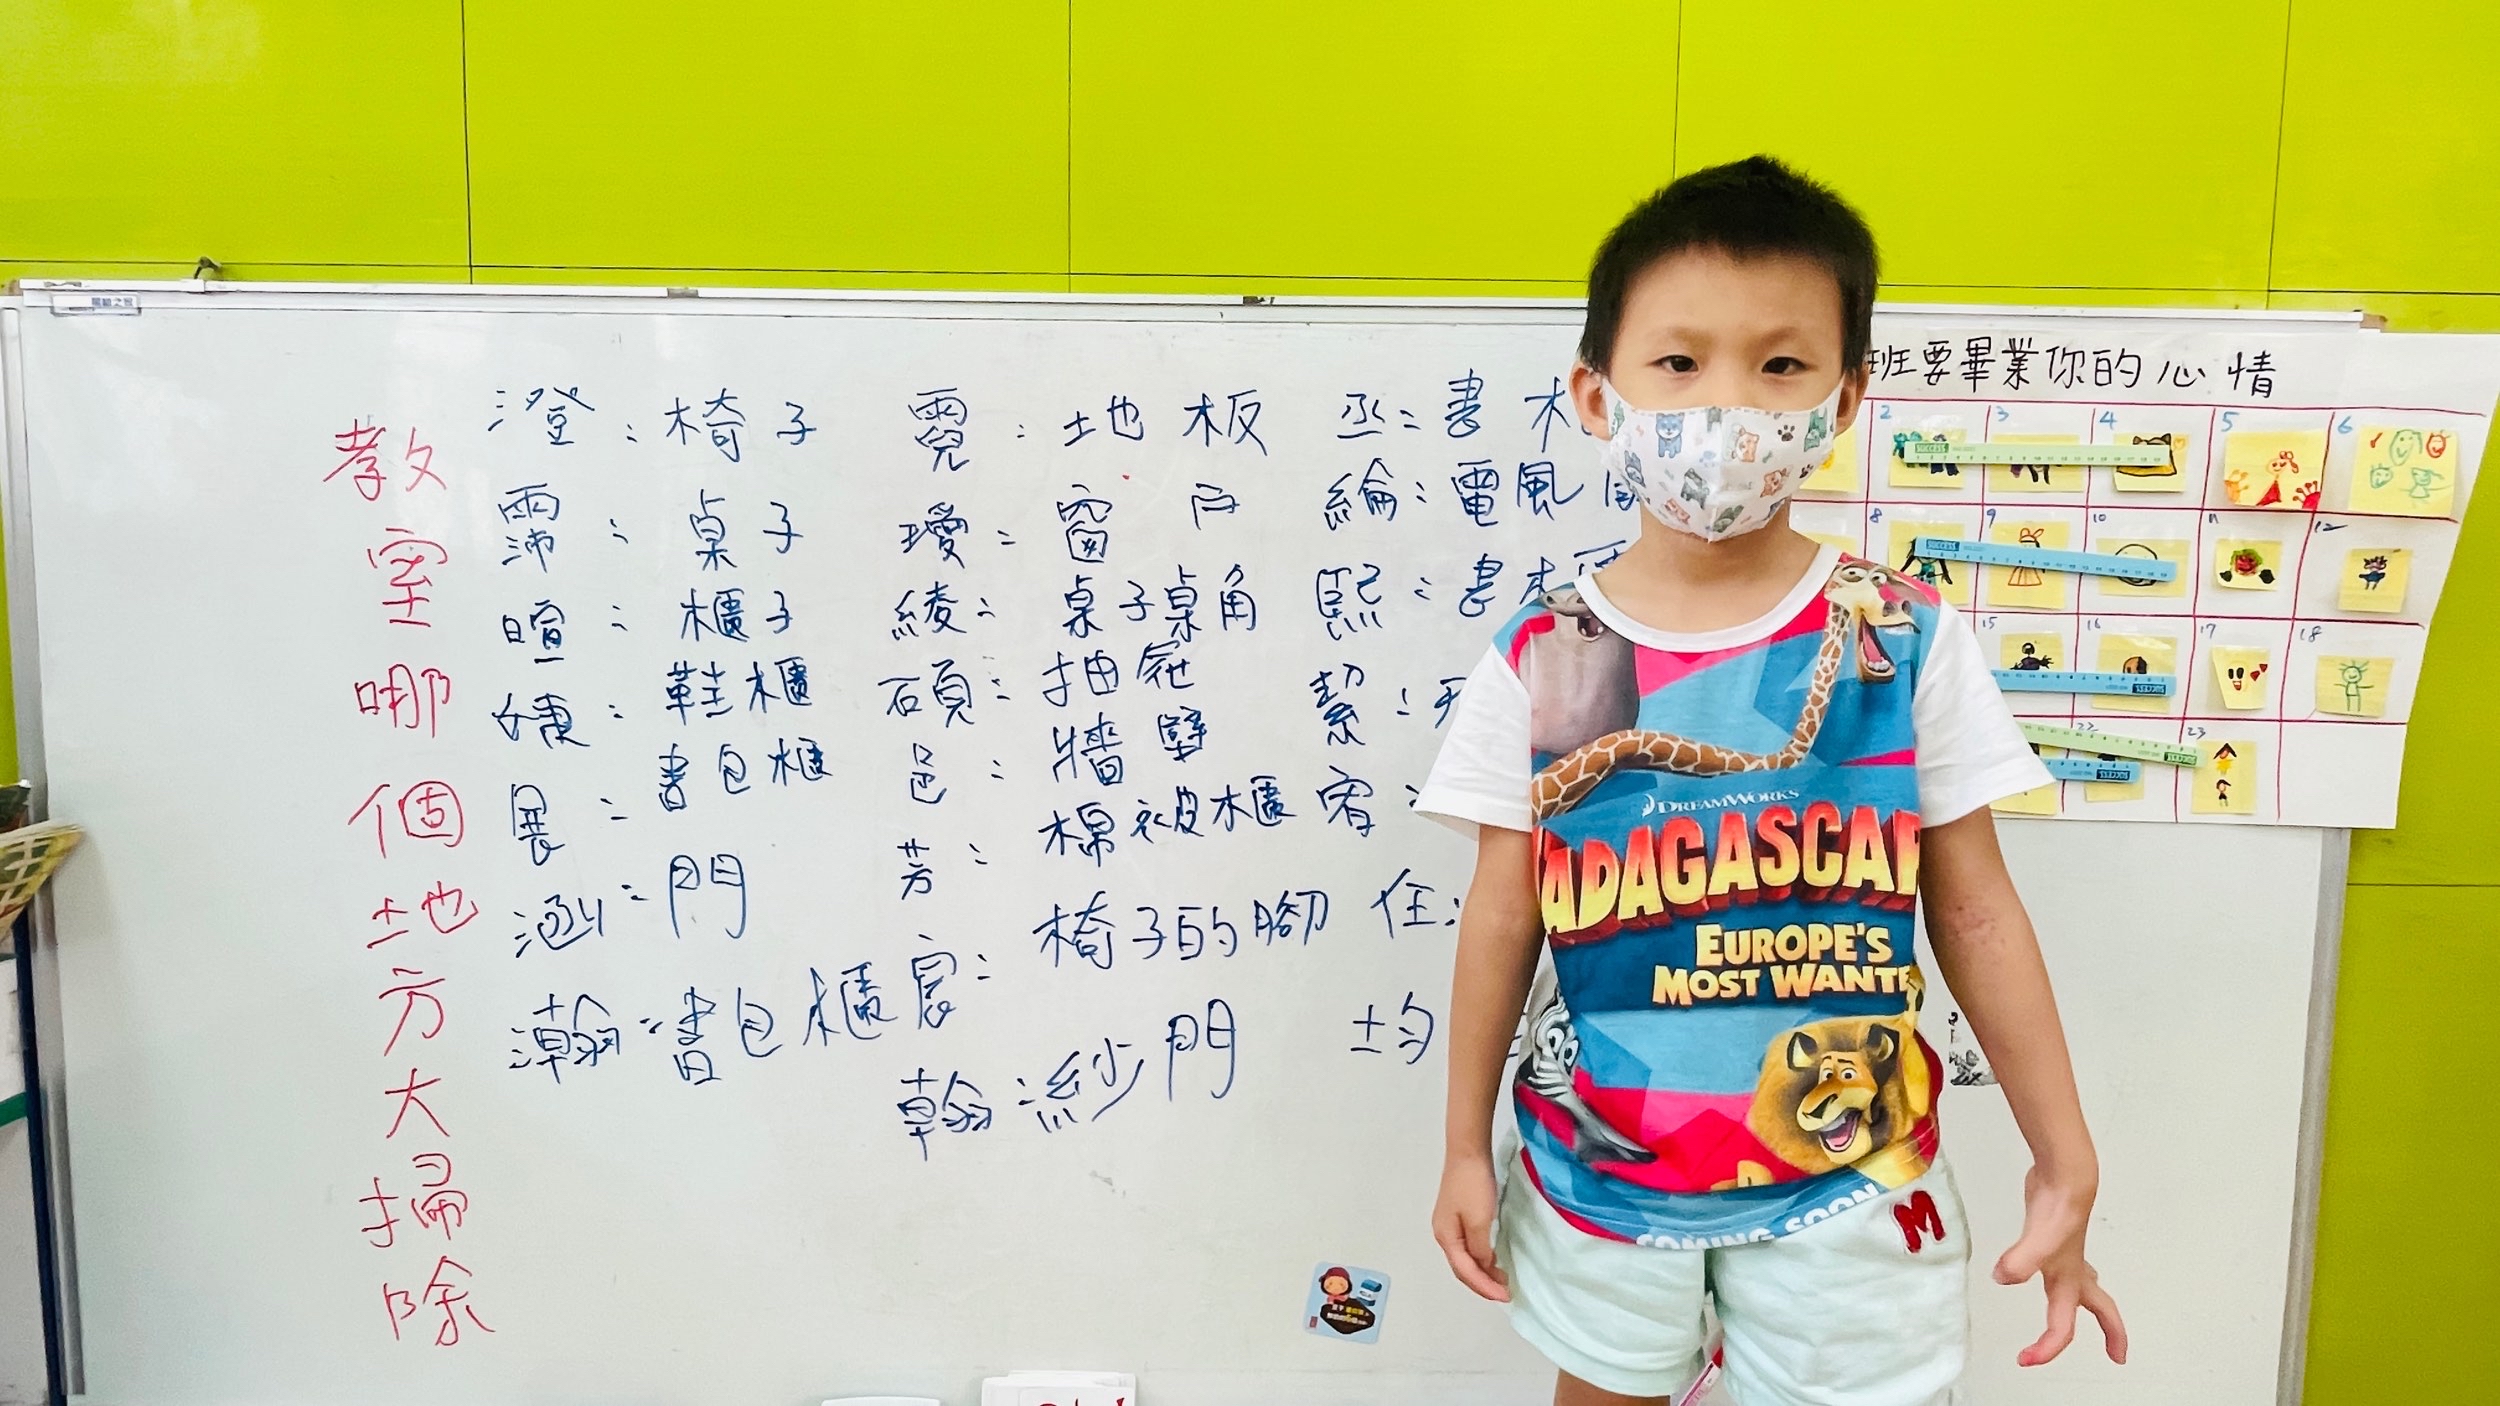 教室哪個地方大掃除
澄：椅子
霈：桌子
暄：櫃子
婕：鞋櫃
晨：書包櫃
涵：門
瀚：書包櫃
霓：地板
璦：窗戶
綾：桌子桌角
碩：抽屜
邑：牆壁
芳：棉被櫃
宸：椅子的腳
翰：紗門
丞：書
綸：電風
熙：書
絜：
宥：
任：
均
班要畢業你的心情
2 3 4 5 6
8 9 10 11 12
15 16 17 18
22 23
SUCCESS
DREAMWORKS
MADAGASCAR
EUROPE'S
MOST WANTE
COMING SOON
M